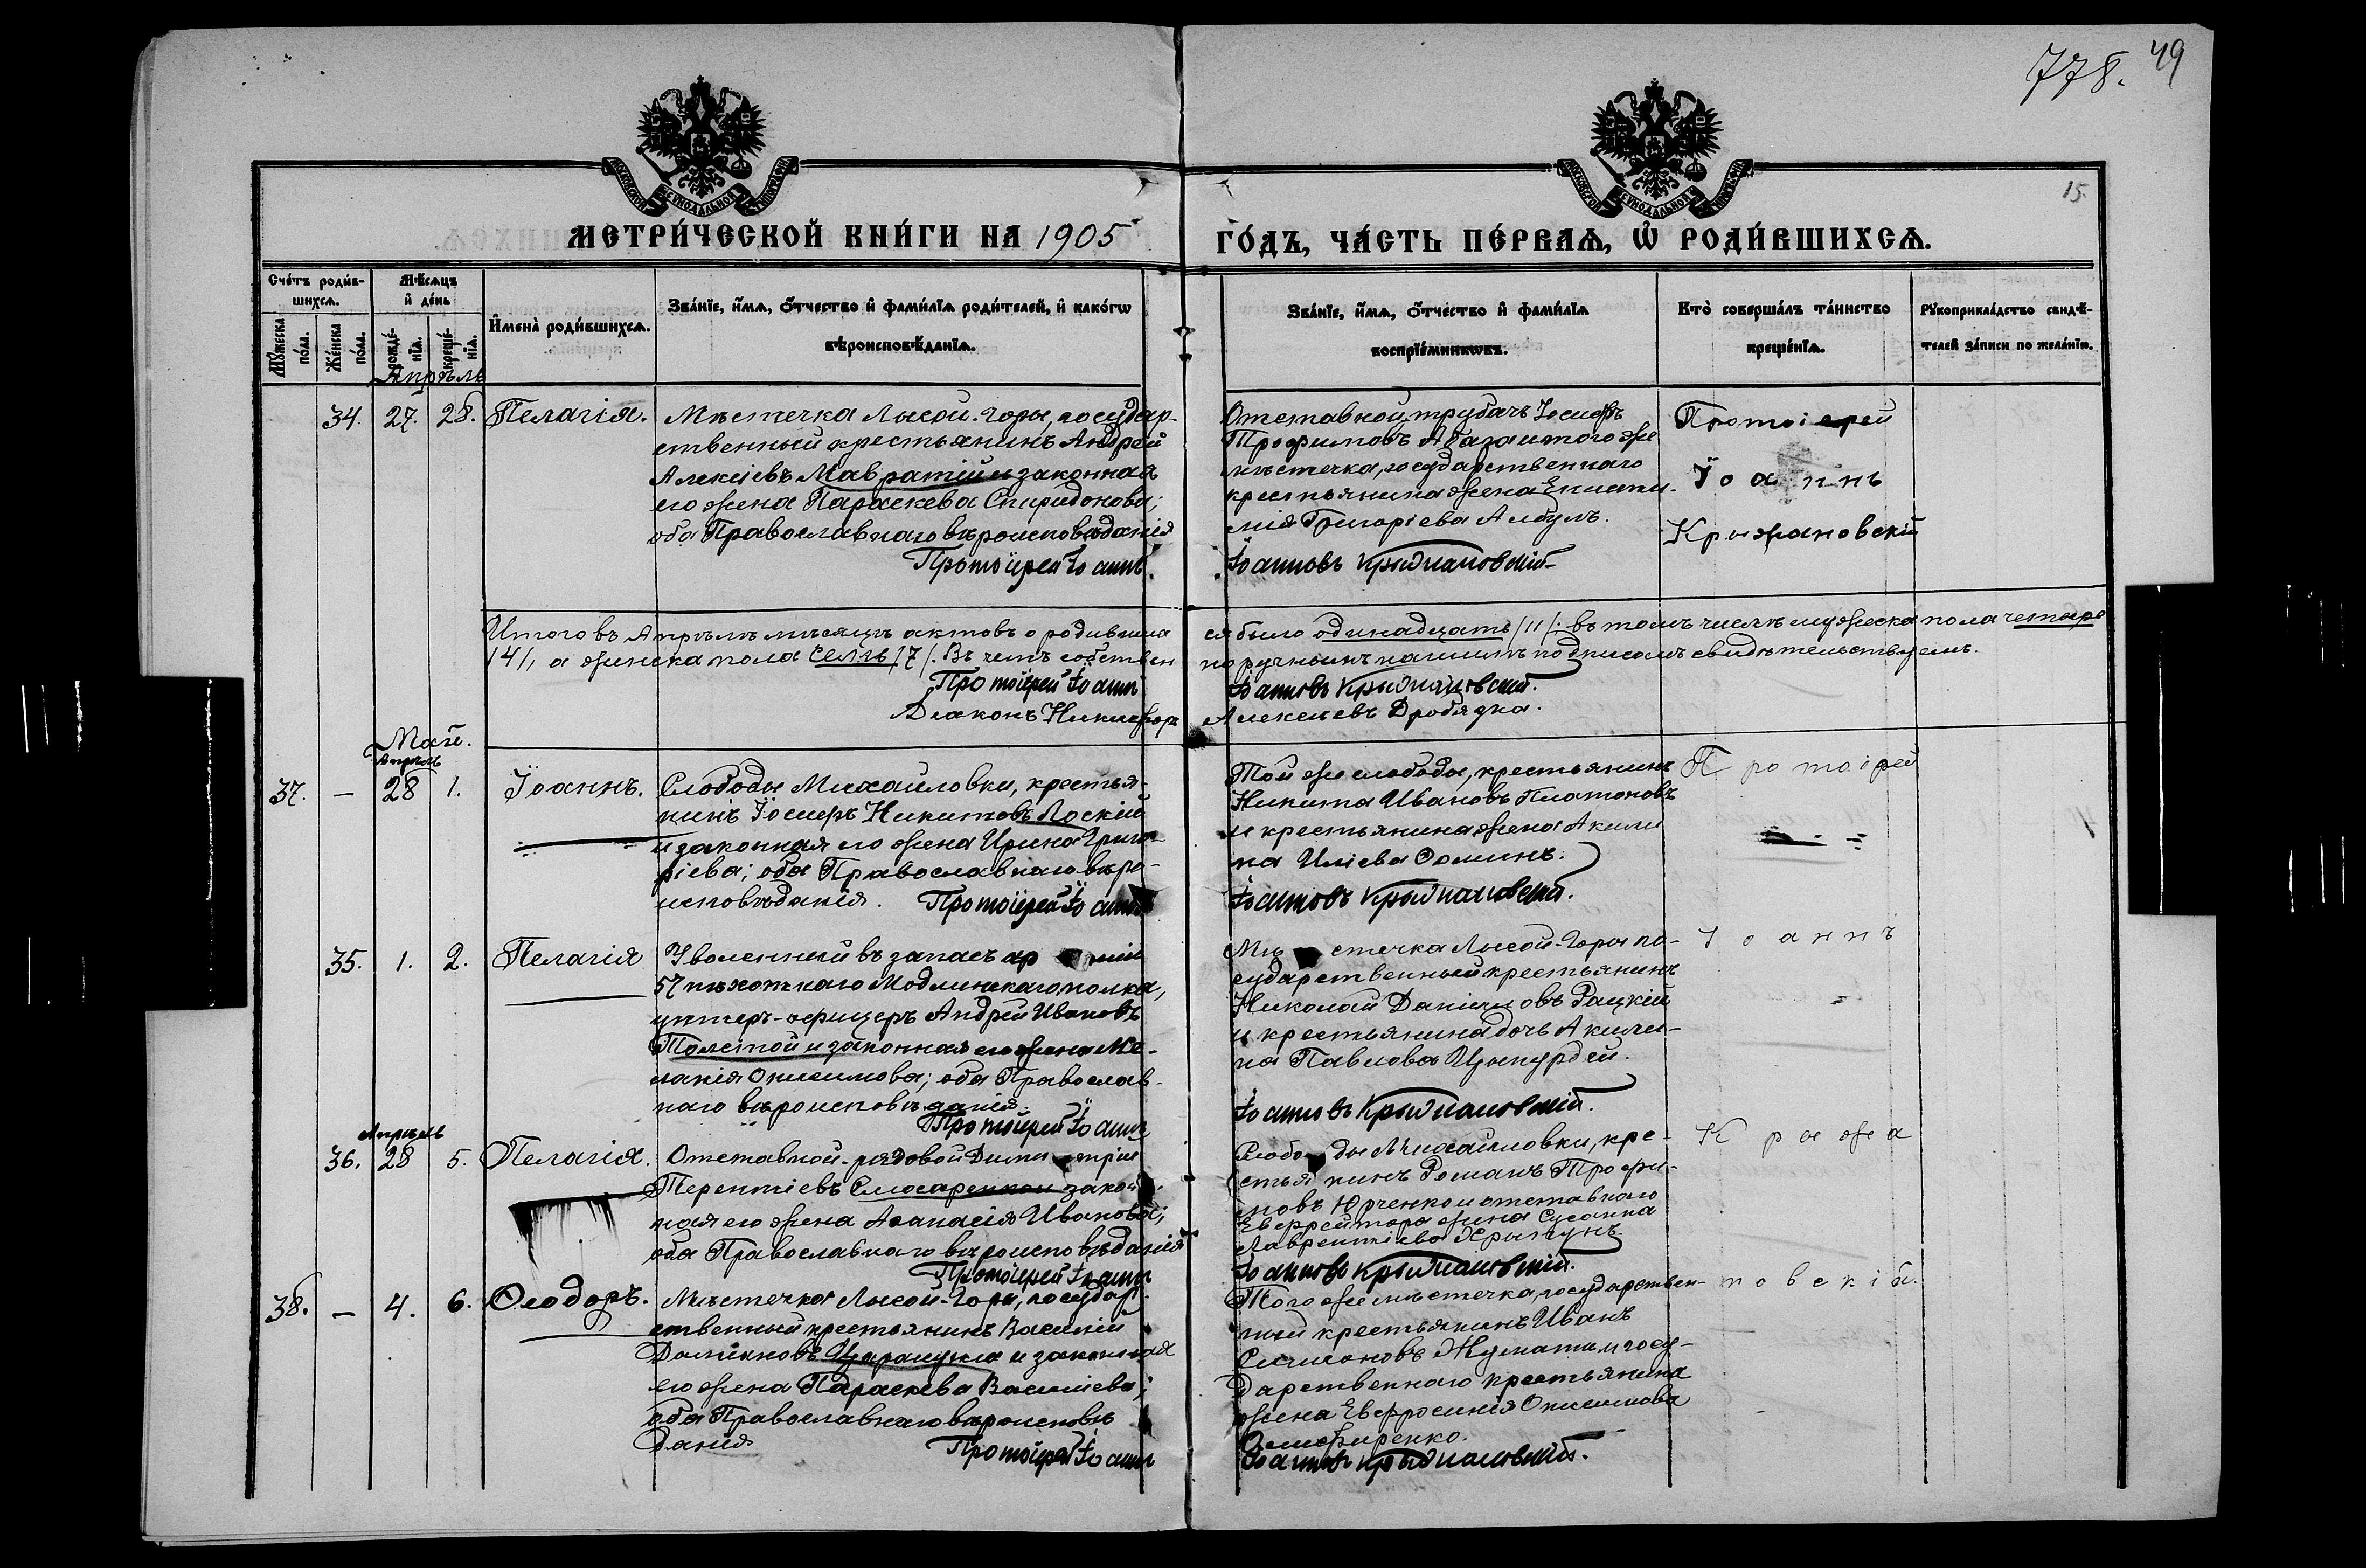 778. 49
15.
МЕТРИ́ЧЕСКОЙ КНИ́ГИ НА 1905
ГО́ДЪ, ЧА́СТЬ ПЕ́РВАѦ, Ѡ҆ РОДИ́ВШИХСѦ.
Сче́тъ роди́в-
шихсѧ.
Мѣ́сѧцъ
и҆ де́нь
Мꙋ́жеска
по́ла.
Же́нска
по́ла.
рожде́-
нїѧ.
креще́-
нїѧ.
И҆мена̀ роди́вшихсѧ.
Зва́нїе, и҆́мѧ, ѻ҆́тчество и҆ фами́лїѧ роди́телей, и҆ како́гѡ
вѣроисповѣ́данїѧ.
Зва́нїе, и҆́мѧ, ѻ҆́тчество и҆ фами́лїѧ
воспрїе́мникѡвъ.
Кто̀ соверша́лъ та́инство
креще́нїѧ.
Рꙋкоприкла́дство свидѣ́-
телей за́писи по жела́нїю.
Апрѣль
34. 27. 28. Пелагія.
Мѣстечка Лысой-Горы, государ-
ственный крестьянинъ Андрей
Алексіевъ Мавратій и законная
его жена Параскева Спиридонова;
оба Православнаго вѣроисповѣданія
Протоіерей Іоаннъ
Отставной трубачъ Іосифъ
Трофимовъ Абаза и того же
мѣстечка, государственнаго
крестьянина жена Екисти-
мія Григоріева Албулъ.
Іоанновъ Крыжановскій
Протоіерей
Іоаннъ
Крыжановскій
Итого въ Апрѣлѣ мѣсяцѣ актовъ о родивши
ся было одинадцать /11/. въ томъ числѣ мужеска пола четыре
/4/, а женска пола семь /7/. Въ чемъ собствен
норучнымъ нашимъ подписомъ свидѣтельствуемъ.
Протоіерей Іоаннъ
Іоанновъ Крыжановскій.
Діаконъ Никифоръ
Алексіевъ Дробязка.
Май.
Апрѣль
37. — 28 1. Іоаннъ.
Слободы Михайловки, крестья-
нинъ Іосифъ Никитовъ Лоскій
и законная его жена Ирина Григо-
ріева; оба Православнаго вѣро-
исповѣданія. Протоіерей Іоаннъ
Той же слободы, крестьянинъ
Никита Ивановъ Платоновъ
и крестьянина жена Акили
на Иліева Ѳоминъ.
Іоанновъ Крыжановскій.
Протоіерей
35. 1. 2. Пелагія
Уволенный въ запасъ арміи
57 пѣхотнаго Модлинскаго полка,
унтеръ-офицеръ Андрей Ивановъ
Толстой и законная его жена Ме-
ланія Онисимова; оба Православ-
наго вѣроисповѣданія.
Протоіерей Іоаннъ
Мѣстечка Лысой-Горы го-
сударственный крестьянинъ
Николай Даніиловъ Рацкій
и крестьянина дочь Акили-
на Павлова Цынурдей.
Іоанновъ Крыжановскій.
Іоаннъ
Апрѣль
36. 28 5. Пелагія.
Отставной рядовой Димитрій
Терентіевъ Слюсаренко и закон-
ная его жена Аѳанасія Иванова;
оба Православнаго вѣроисповѣданія
Протоіерей Іоаннъ
Слободы Михайловки, кре-
стьянинъ Романъ Трофи-
мовъ Юрченко и отставнаго
Ефрейтора жена Сусанна
Лаврентіева
Іоанновъ Крыжановскій.
Крыжа
38. — 4. 6. Ѳеодоръ.
Мѣстечка Лысой-Горы, государ-
ственный крестьянинъ Василій
Даміановъ и законная
его жена Параскева Василіева;
оба Православнаго вѣроисповѣ
данія
Протоіерей Іоаннъ
Того же мѣстечка, государствен-
ный крестьянинъ Иванъ
Симеоновъ и госу-
дарственнаго крестьянина
жена Евфросинія Онисимова
Іоанновъ Крыжановскій.
новскій.